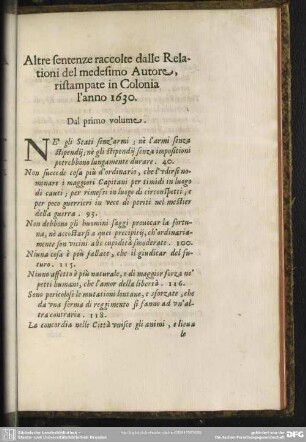 Altre sentenze raccolte dalle Rela-
tioni del medesimo Autore,
ristampate in Colonia
l'anno 1630.
Dal primo volume.
NE' gli Stati senz'armi ; nè l'armi senza
stipendij; nè gli stipendij senza impositioni
potrebbono lungamente durare. 40.
Non succede cosa più d'ordinario, che l'vdirsi no-
minare i maggiori Capitani per timidi in luogo
di cauti ; per rimessi in luogo di circospetti ; e
per poco guerrieri in vece di periti nel mestier
della guerra . 95.
Non debbono gli huomini saggi prouocar la fortu-
na, nè accostarsi a quei precipitij, ch'ordinaria-
mente son vicini alle cupidità smoderate. 100.
Niuna cosa è più fallace, che il giudicar del fu-
turo. 115.
Niuno affetto è più naturale, e di maggior forza ne'
petti humani, che l'amor della libertà . 116.
Sono pericolose le mutationi lentaue, e sforzate, che
da vna forma di reggimento si fanno ad vn'al-
tra contraria . 118.
La concordia nelle Città vnisce gli animi , e lieua
le